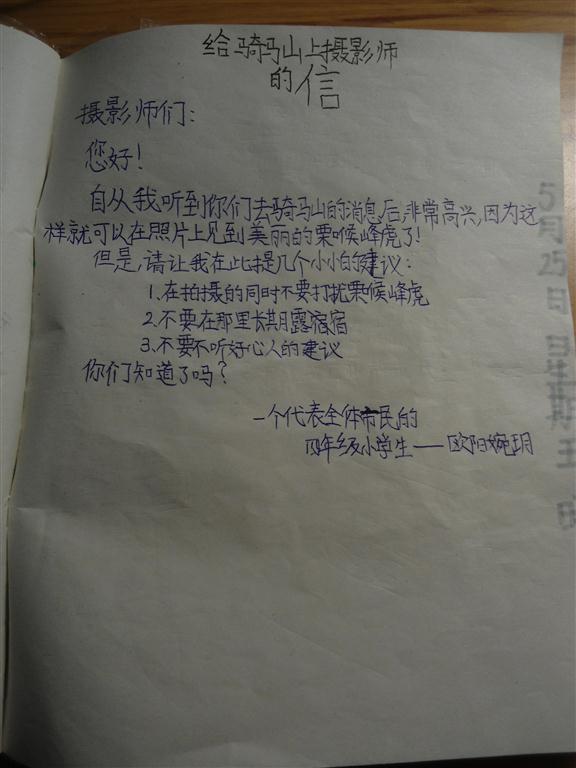 给骑马山上摄影师
的信
摄影师们：
您好！
自从我听到你们去骑马山的消息后，非常高兴，因为这
样就可以在照片上见到美丽的栗喉峰虎了！
但是，请让我在此提几个小小的建议：
1.在拍摄的同时不要打扰栗候峰虎
2.不要在那里长期露宿宿
3.不要不听好心人的建议
你们知道了吗？
一个代表全体市民的
四年级小学生——欧阳婉玥
5月25日 星期五 晴